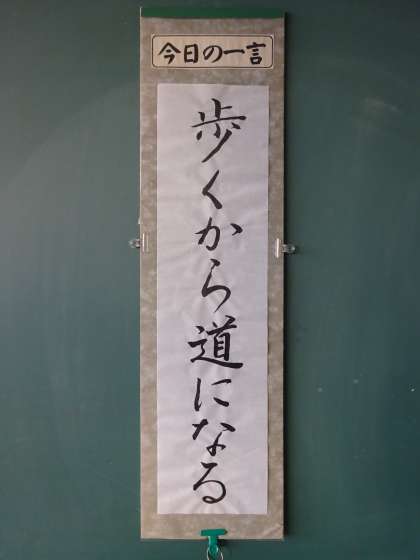 今日の一言
歩くから道になる